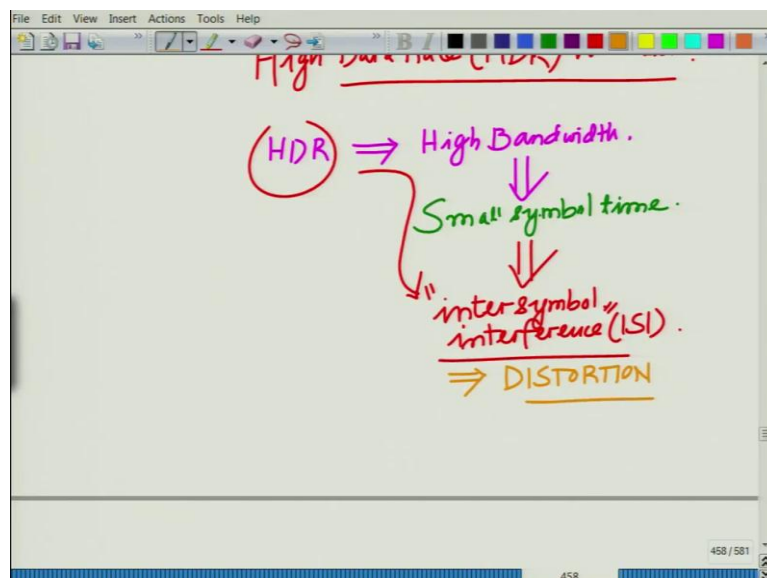 File Edit View Insert Actions Tools Help
B I
High Data Rate (HDR)
HDR ⇒ High Bandwidth.
Small symbol time.
"intersymbol
interference" (ISI).
⇒ DISTORTION
458 / 581
458